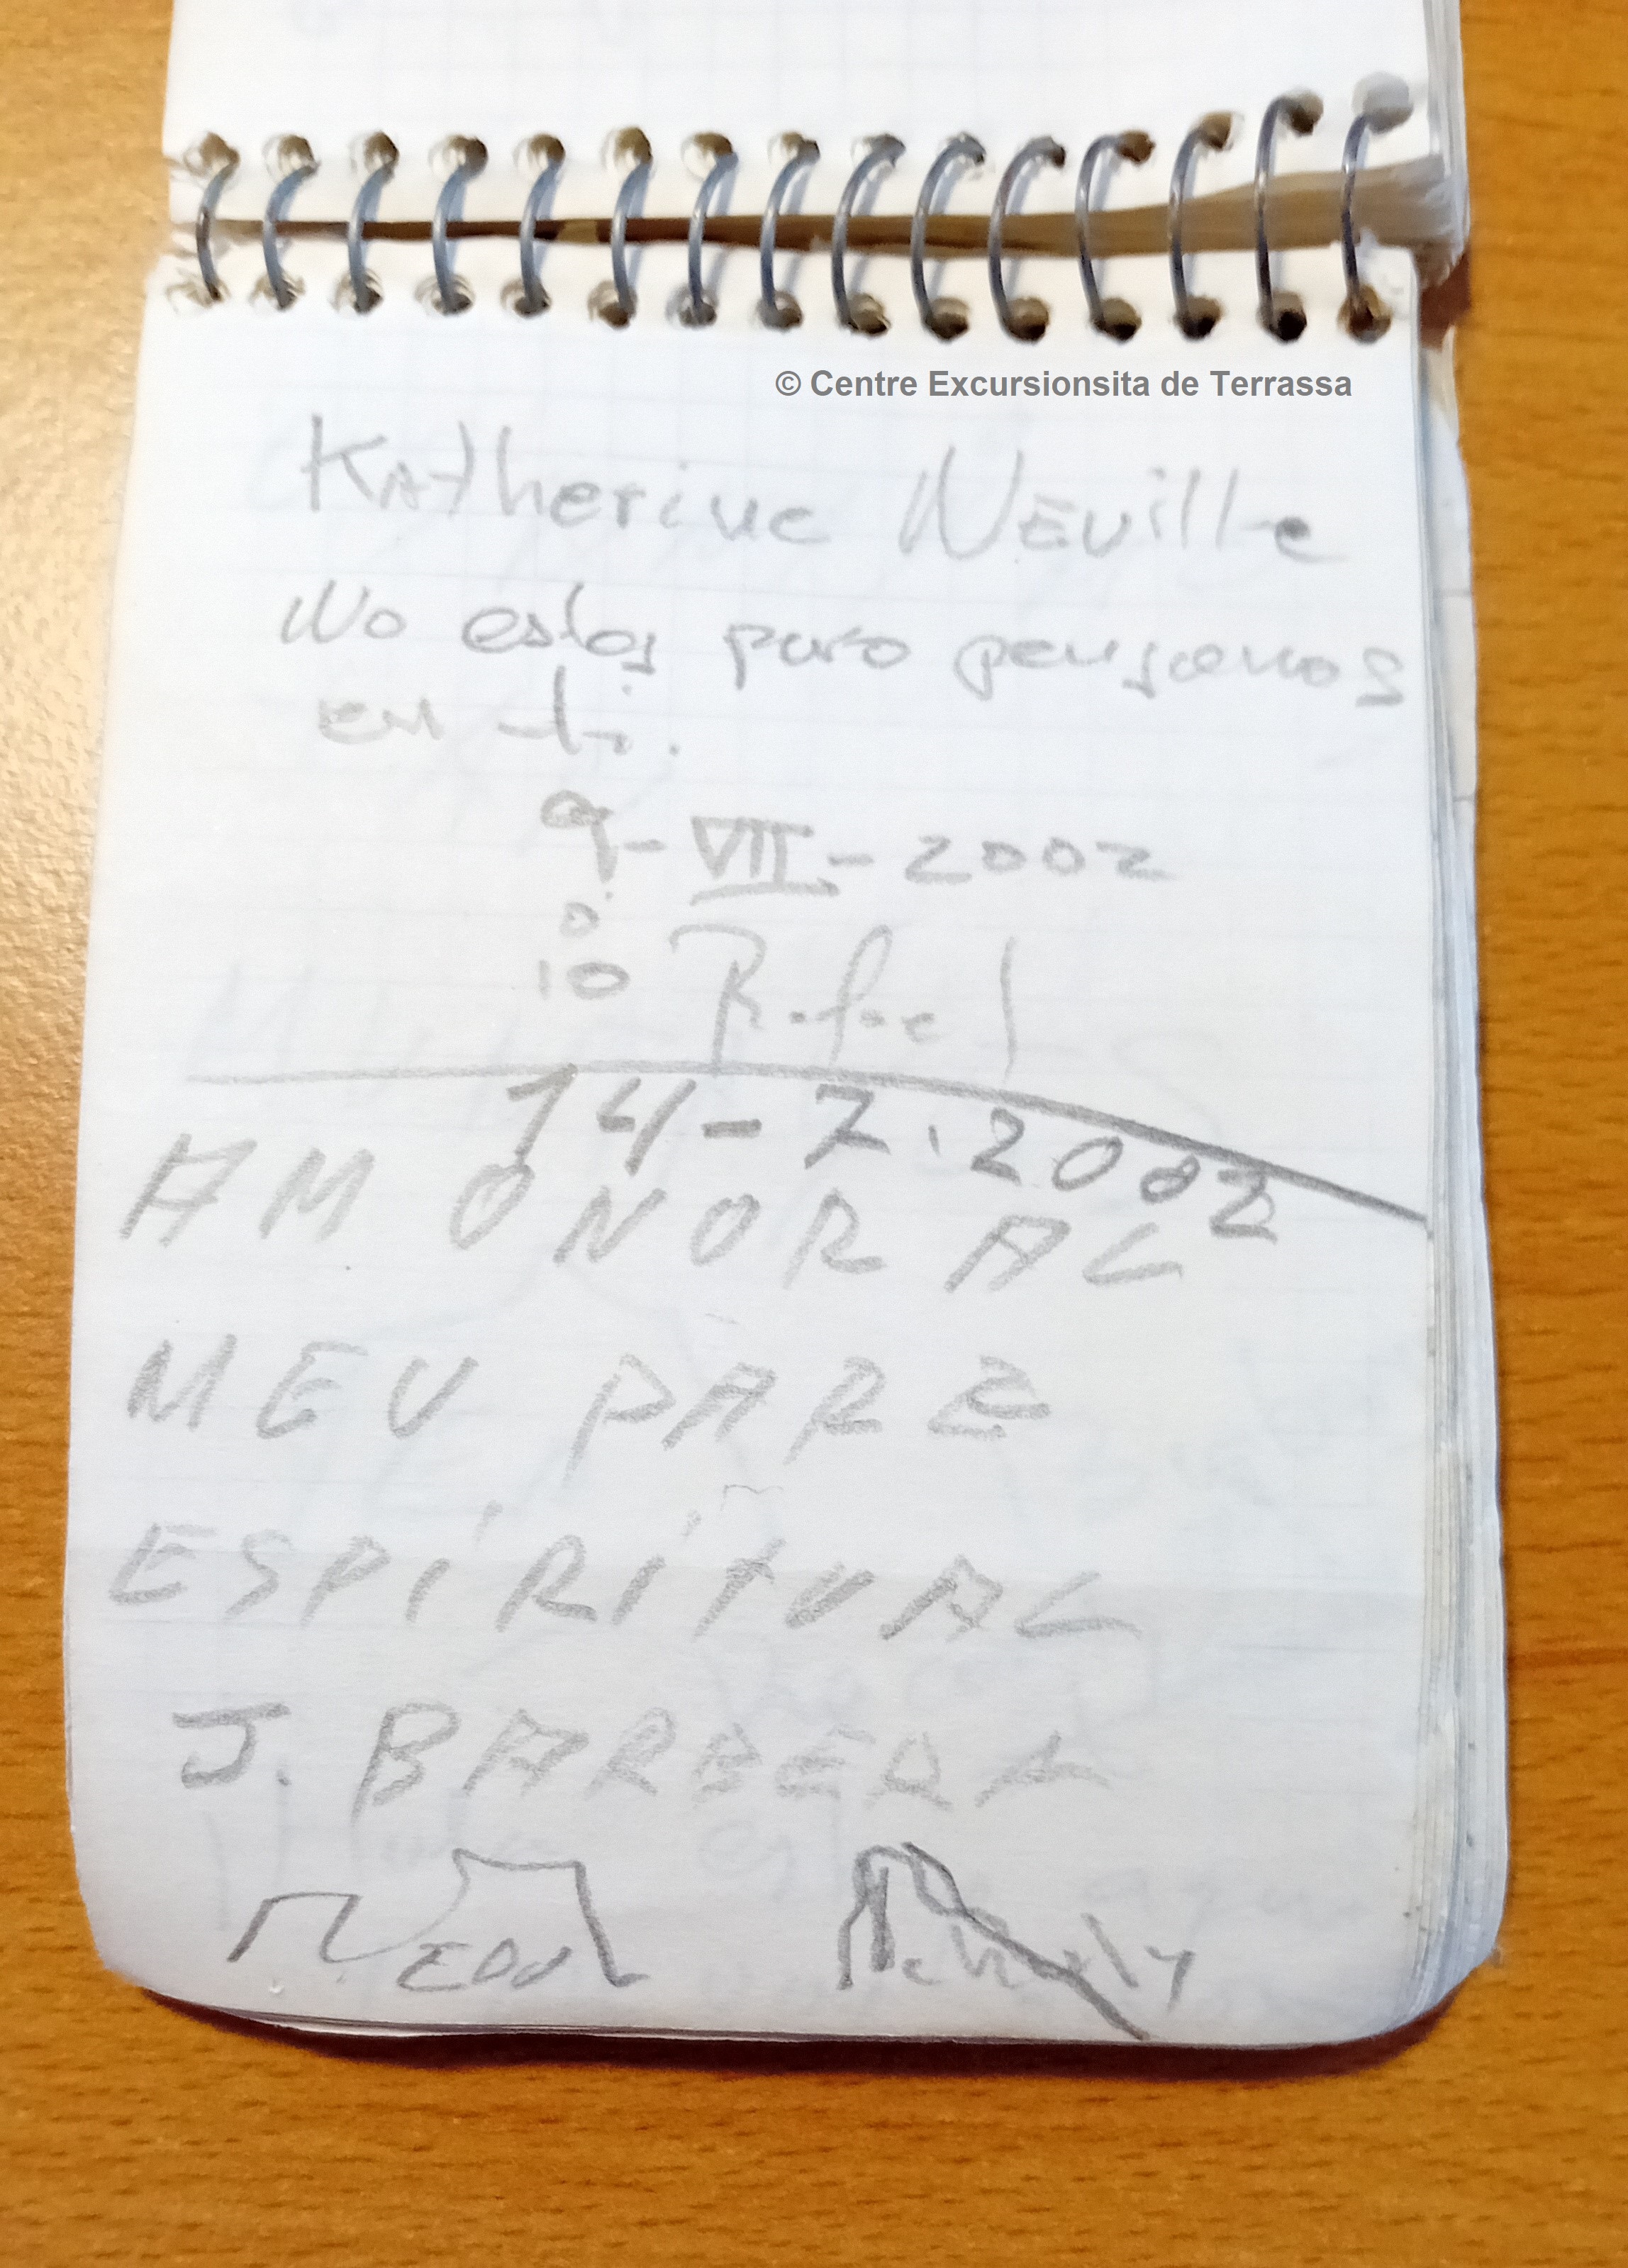 © Centre Excursionsita de Terrassa
Katherine Neville
No estas pero pensamos
en ti.
9- VII - 2002
o
10 Rafael
14-7.2002
AM ONOR AL
MEU PARE
ESPÍRÍTUAL
J. BARBERA